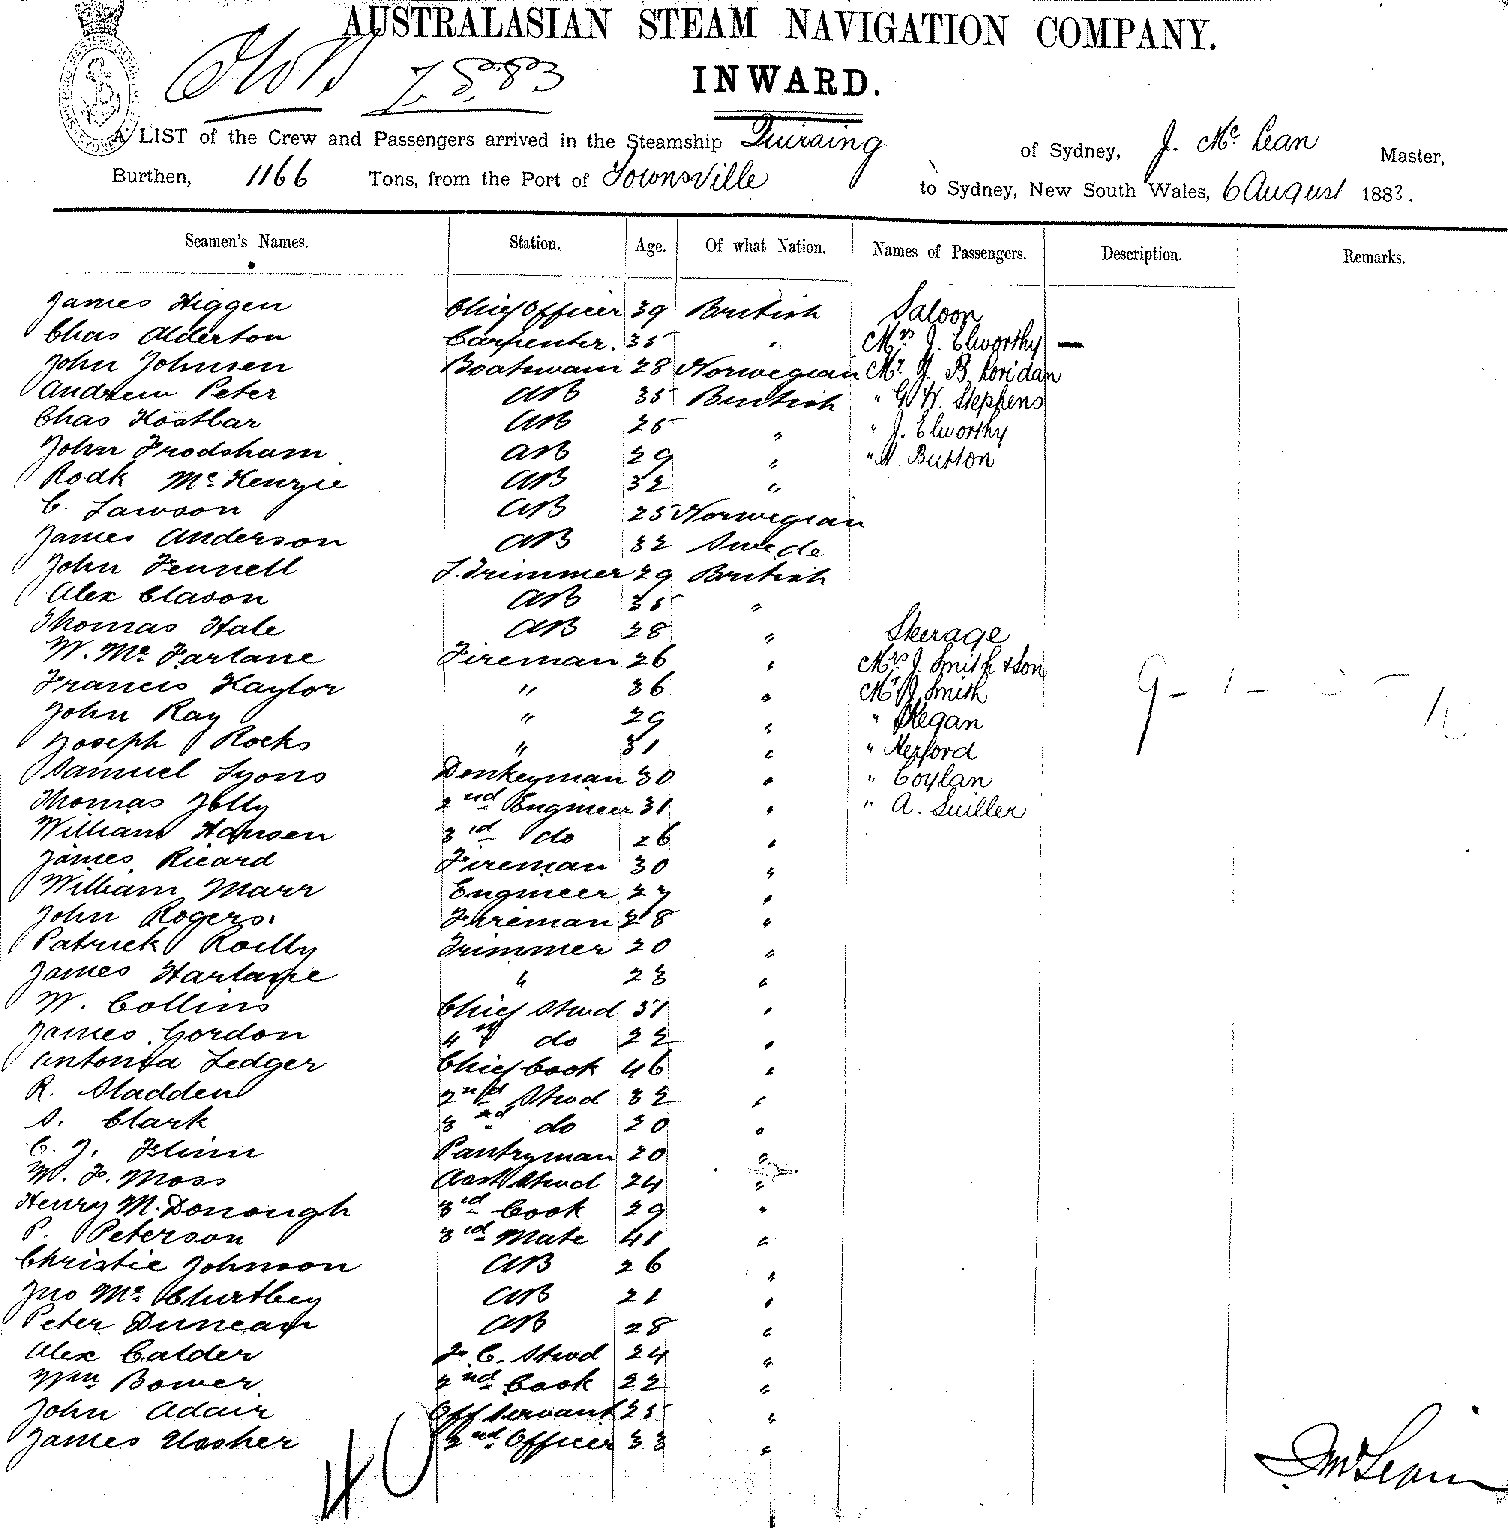 AUSTRALASIAN STEAM NAVIGATION COMPANY.
INWARD.
A LIST of the Crew and Passengers arrived in the Steamship Quiraing of Sydney, J. Mc Lean Master,
Burthen, 1166 Tons, from the Port of Townsville to Sydney, New South Wales, 6 August 1883.
Seamen's Names. Station. Age. Of what Nation. Names of Passengers. Description. Remarks.
James Higgen Chief Officer 39 British Saloon
Chas Alderton Carpenter. 35 " Mrs J. Elworthy —
John Johnsen Boatswain 28 Norwegian Mr B Loridan
Andrew Peter AB 35 British " G W. Stephens
Chas Hostbar AB 25 " " J. Elworthy
John Frodsham AB 29 " " Button
Rodk McKenzie AB 32 "
C. Lawson AB 25 Norwegian
James Anderson AB 32 Swede
John Fennell L. Trimmer 29 British
Alex Clason AB 35 "
Thomas Hale AB 28 " Steerage
W. Mc Farlane Fireman 26 " Mrs J. Smith & Son
Francis Kaylor " 36 " Mr J Smith
John Ray " 29 " " Hegan
Joseph Rocks " 31 " " Herford
Samuel Lyons Donkeyman 30 " " Coylan
Thomas Jolly 2nd Engineer 31 " " A. Suiller
William Hansen 3rd do 26 "
James Ricard Fireman 30 "
William Marr Engineer 27 "
John Rogers. Fireman 28 "
Patrick Reilly Trimmer 20 "
James Hartane " 23 "
W. Collins Chief Stwd 31 "
James Gordon " do 22 "
Antonia Ledger Chief Cook 46 "
R. Sladden 2nd Stwd 32 "
S. Clark 3rd do 20 "
C. J. Flinn Pantryman 20 "
W. F. Moss Asst Stwd 24 "
Henry M. Donough 3rd Cook 29 "
P. Peterson 3rd Mate 41 "
Christie Johnson AB 26 "
Jno Mc Churtbey AB 21 "
Peter Duncan AB 28 "
Alex Calder F. C. Stwd 24 "
Wm Bower 2nd Cook 22 "
John Adair Off Servant 25 "
James Usher 2nd Officer 33 "
40
J McLean